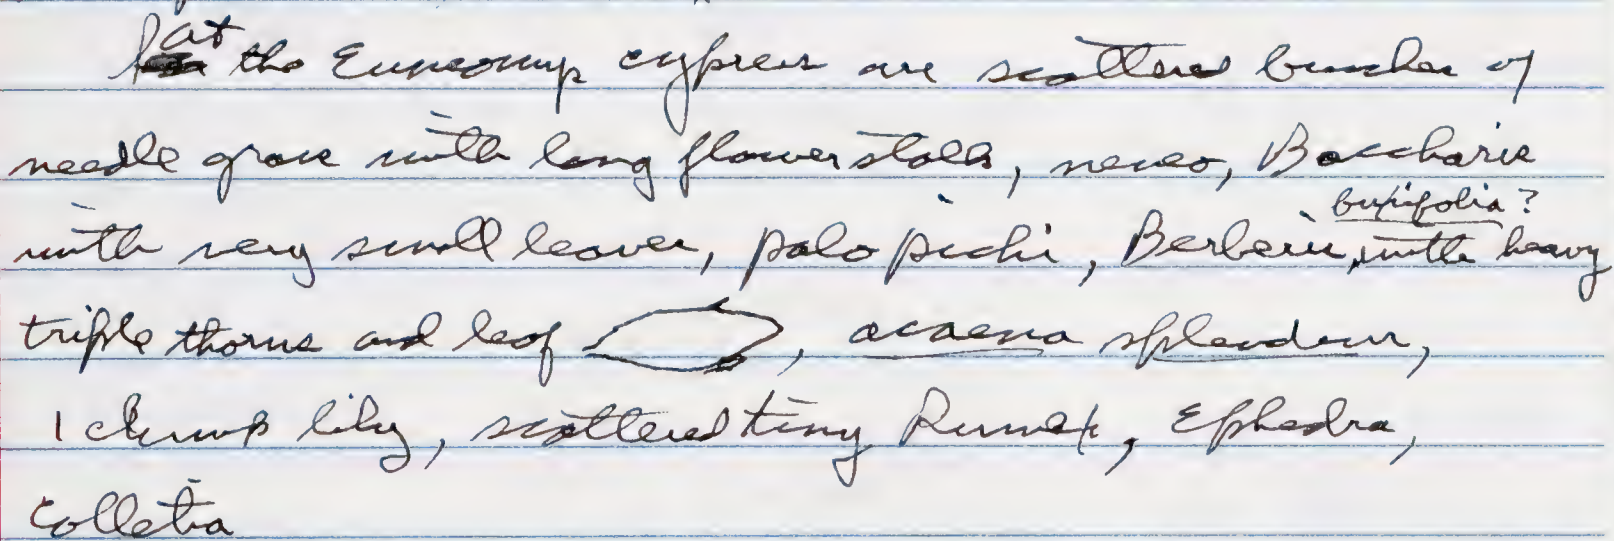 at the Euncomup cypress are scattered bunches of
needle grass with long flower stalks, neneo, Baccharis
buxifolia?
with very small leaves, palo pichi, Berberis, with heavy
triple thorns and leaf , acaena splendens,
1 clump lily, scattered tiny Rumex, Ephedra,
Colletia